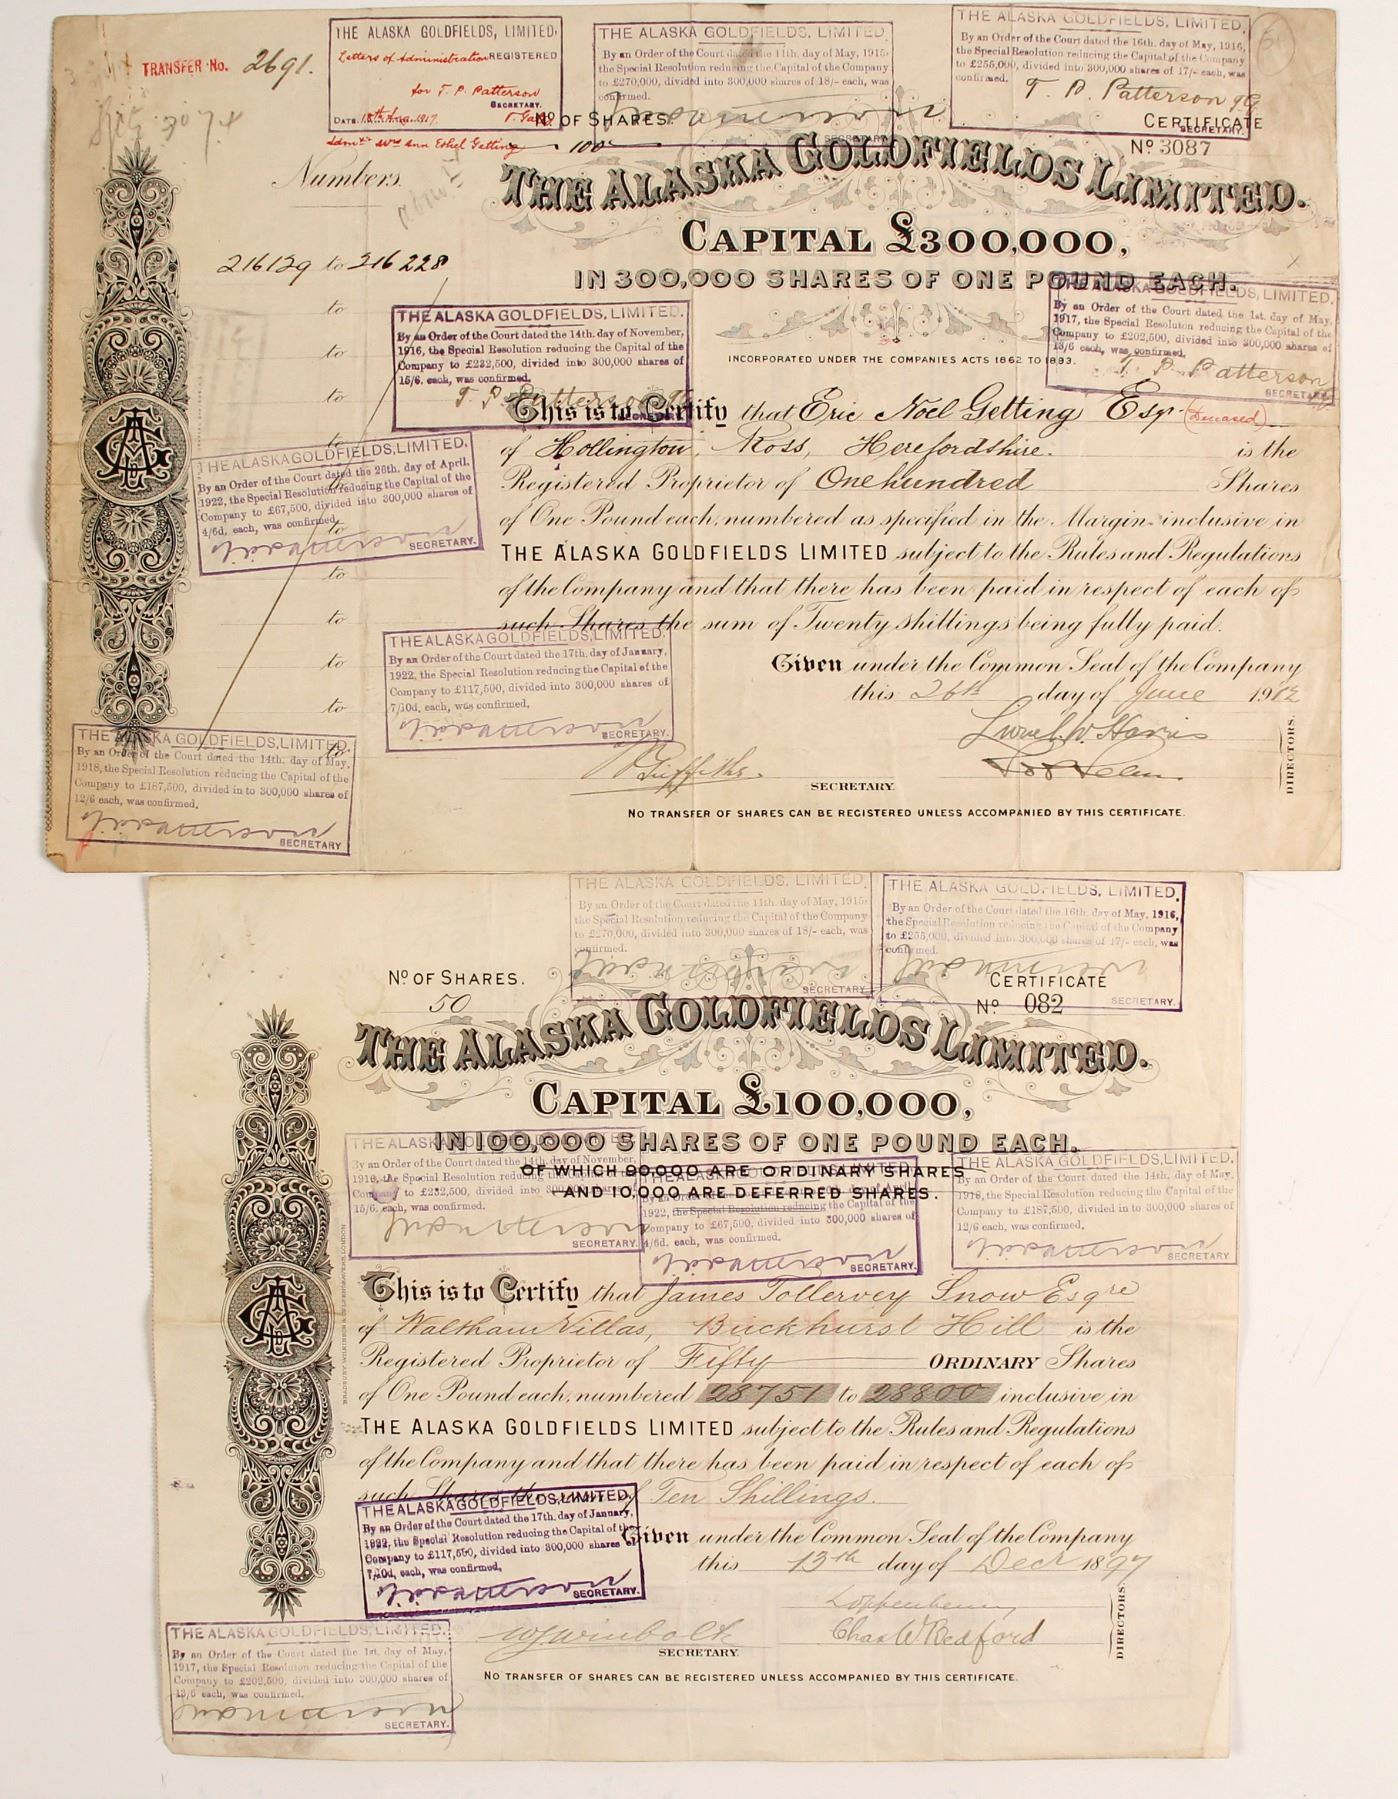 TRANSFER No. 2691.
THE ALASKA GOLDFIELDS, LIMITED,
Letters of Administration REGISTERED
for T. P. Patterson
SECRETARY.
DATE
THE ALASKA GOLDFIELDS, LIMITED.
By an Order of the Court dated the 11th. day of May, 1915.
the Special Resolution reducing the Capital of the Company
to £270,000, divided into 300,000 shares of 18/- each, was
confirmed.
SECRETARY.
THE ALASKA GOLDFIELDS, LIMITED.
By an Order of the Court dated the 16th. day of May, 1916,
the Special Resolution reducing the Capital of the Company
to £255,000, divided into 300,000 shares of 17/- each, was
confirmed.
T. P. Patterson
SECRETARY.
No OF SHARES.
100
CERTIFICATE
No 3087
Numbers.
216129 to 216228
to
to
to
to
to
to
to
to
to
to
to
THE ALASKA GOLDFIELDS LIMITED.
CAPITAL £300,000,
IN 300,000 SHARES OF ONE POUND EACH.
INCORPORATED UNDER THE COMPANIES ACTS 1862 TO 1893.
THE ALASKA GOLDFIELDS, LIMITED.
By an Order of the Court dated the 1st. day of May,
1917, the Special Resolution reducing the Capital of the
Company to £202,500, divided into 300,000 shares of
13/6 each, was confirmed.
T. P. Patterson
SECRETARY.
THE ALASKA GOLDFIELDS, LIMITED.
By an Order of the Court dated the 14th. day of November,
1916, the Special Resolution reducing the Capital of the
Company to £232,500, divided into 300,000 shares of
15/6. each, was confirmed.
T. P. Patterson
SECRETARY.
This is to Certify that Eric Noel Getting Esqr (Deceased)
of Hollington, Ross, Herefordshire. is the
Registered Proprietor of One hundred Shares
of One Pound each, numbered as specified in the Margin inclusive in
THE ALASKA GOLDFIELDS LIMITED subject to the Rules and Regulations
of the Company and that there has been paid in respect of each of
such Shares the sum of Twenty shillings being fully paid.
Given under the Common Seal of the Company
this 26th day of June 1912
SECRETARY.
DIRECTORS.
NO TRANSFER OF SHARES CAN BE REGISTERED UNLESS ACCOMPANIED BY THIS CERTIFICATE.
THE ALASKA GOLDFIELDS, LIMITED.
By an Order of the Court dated the 26th. day of April,
1922, the Special Resolution reducing the Capital of the
Company to £67,500, divided into 300,000 shares of
4/6d, each, was confirmed,
SECRETARY.
THE ALASKA GOLDFIELDS, LIMITED.
By an Order of the Court dated the 17th. day of January,
1922, the Special Resolution reducing the Capital of the
Company to £117,500, divided into 300,000 shares of
7/10d, each, was confirmed,
SECRETARY.
THE ALASKA GOLDFIELDS, LIMITED.
By an Order of the Court dated the 14th. day of May,
1918, the Special Resolution reducing the Capital of the
Company to £187,500, divided in to 300,000 shares of
12/6 each, was confirmed.
SECRETARY
THE ALASKA GOLDFIELDS, LIMITED.
By an Order of the Court dated the 11th. day of May, 1915.
the Special Resolution reducing the Capital of the Company
to £270,000, divided into 300,000 shares of 18/- each, was
confirmed.
SECRETARY.
THE ALASKA GOLDFIELDS, LIMITED.
By an Order of the Court dated the 16th. day of May, 1916,
the Special Resolution reducing the Capital of the Company
to £255,000, divided into 300,000 shares of 17/- each, was
confirmed.
SECRETARY.
No OF SHARES.
50
CERTIFICATE
No 082
THE ALASKA GOLDFIELDS LIMITED.
CAPITAL £100,000,
IN 100,000 SHARES OF ONE POUND EACH.
OF WHICH 90,000 ARE ORDINARY SHARES
AND 10,000 ARE DEFERRED SHARES.
THE ALASKA GOLDFIELDS, LIMITED.
By an Order of the Court dated the 14th. day of November,
1916, the Special Resolution reducing the Capital of the
Company to £232,500, divided into 300,000 shares of
15/6. each, was confirmed.
SECRETARY.
THE ALASKA GOLDFIELDS, LIMITED.
By an Order of the Court dated the 26th. day of April,
1922, the Special Resolution reducing the Capital of the
Company to £67,500, divided into 300,000 shares of
4/6d. each, was confirmed,
SECRETARY.
THE ALASKA GOLDFIELDS, LIMITED.
By an Order of the Court dated the 14th. day of May,
1918, the Special Resolution reducing the Capital of the
Company to £187,500, divided in to 300,000 shares of
12/6 each, was confirmed.
SECRETARY
BRADBURY WILKINSON & Co LD ENGRAVERS, LONDON
This is to Certify that James Tollervey Snow Esqre
of Waltham Villas, Buckhurst Hill is the
Registered Proprietor of Fifty ORDINARY Shares
of One Pound each, numbered 28751 to 28800 inclusive in
THE ALASKA GOLDFIELDS LIMITED subject to the Rules and Regulations
of the Company and that there has been paid in respect of each of
such Shares the sum of Ten Shillings.
Given under the Common Seal of the Company
this 13th day of Decr 1897
Chas W Bedford
SECRETARY.
DIRECTORS.
NO TRANSFER OF SHARES CAN BE REGISTERED UNLESS ACCOMPANIED BY THIS CERTIFICATE.
THE ALASKA GOLDFIELDS, LIMITED.
By an Order of the Court dated the 17th. day of January,
1922, the Special Resolution reducing the Capital of the
Company to £117,500, divided into 300,000 shares of
7/10d, each, was confirmed,
SECRETARY.
THE ALASKA GOLDFIELDS, LIMITED.
By an Order of the Court dated the 1st. day of May,
1917, the Special Resolution reducing the Capital of the
Company to £202,500, divided into 300,000 shares of
13/6 each, was confirmed.
SECRETARY.